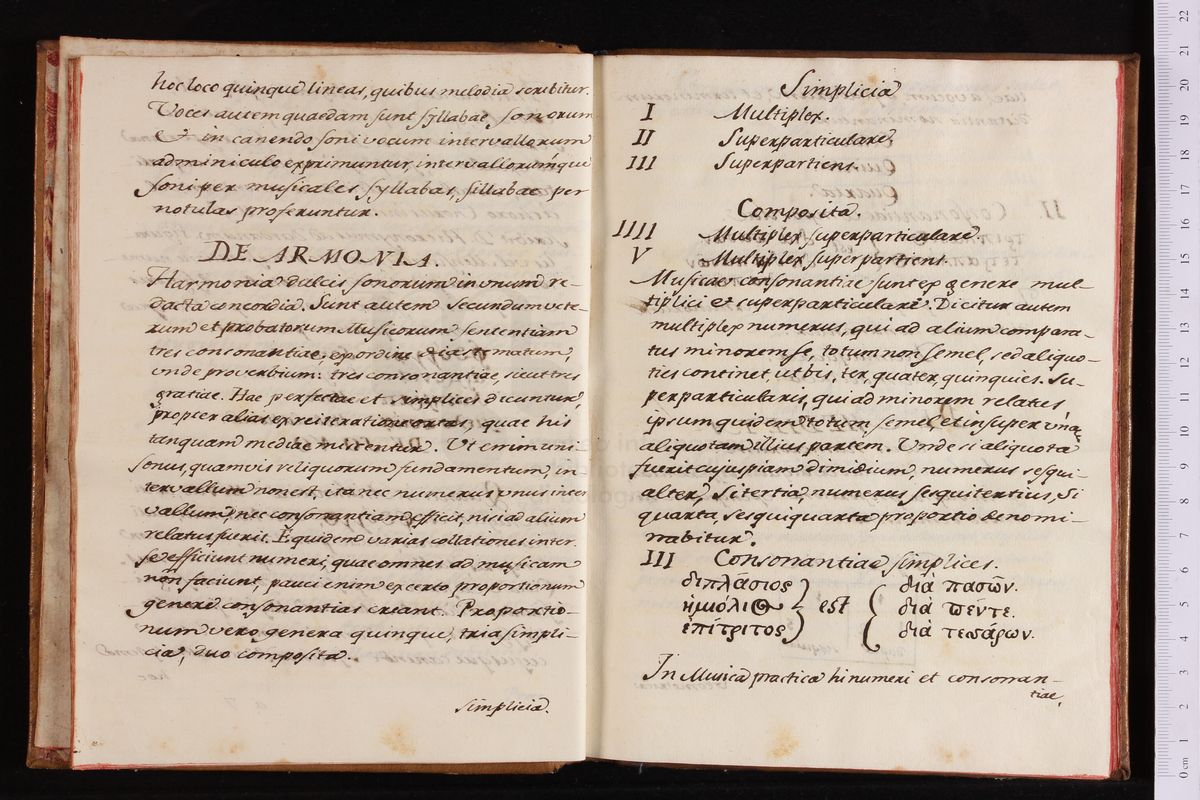 hoc loco quinque lineas, quibus melodia scribitur.
Voces autem quaedam sunt syllabae, sonorum
& in canendo soni vocum intervallorum
adminiculo exprimuntur, intervallorumque
soni per musicales syllabas, sillabae per
notulas proferuntur.
DE ARMONIA.
Harmonia dulcis sonorum in unum re-
dacta concordia. Sunt autem secundum vete-
rum et probatorum Musicorum sententiam
tres consonantiae, ex ordine diastematum,
vnde proverbium: tres consonantiae, sicut tres
gratiae. Hae perfectae et simplices dicuntur,
propter alias ex reiteratione ortas, quae his
tanquam mediae miscentur. Ut enim uni-
sonus, quamvis reliquorum fundamentum in
tervallum non est, ita nec numerus vnus inter
vallum, nec consonantiam efficit, nisi ad alium
relatus fuerit. Equidem varias collationes inter
se efficiunt numeri, quae omnes ad musicam
non faciunt, pauci enim ex certo proportionum
genere consonantias creant. Proportio-
num vero genera quinque, tria simpli-
cia, duo composita.
simplicia
Simplicia
I Multiplex.
II Superparticulare,
III Superpartiens.
Composita.
IIII Multiplex superparticulare.
V Multiplex superpartiens.
Musicae consonantiae sunt ex genere mul-
tiplici et superparticulare. Dicitur autem
multiplex numerus, qui ad alium compara-
tus minorem se, totum non semel, sed aliquo-
ties continet, ut bis, ter, quater, quinquies. Su-
perparticularis, qui ad minorem relatus
ipsum quidem totum semel et insuper vna
aliquotam illius partem. Unde si aliquota
fuerit cujuspiam dimidium, numerus sesqui-
alter, si tertia, numerus sesquitertius, si
quarta, sesquiquarta proportio denomi-
nabitur.
III Consonantiae simplices.
διπλάσιος διὰ πασῶν.
ἡμιόλιος est διὰ πεντε.
ἐπίτριτος διὰ τεσσάρων.
In Musica practica hi numeri et consonan-
tiae,